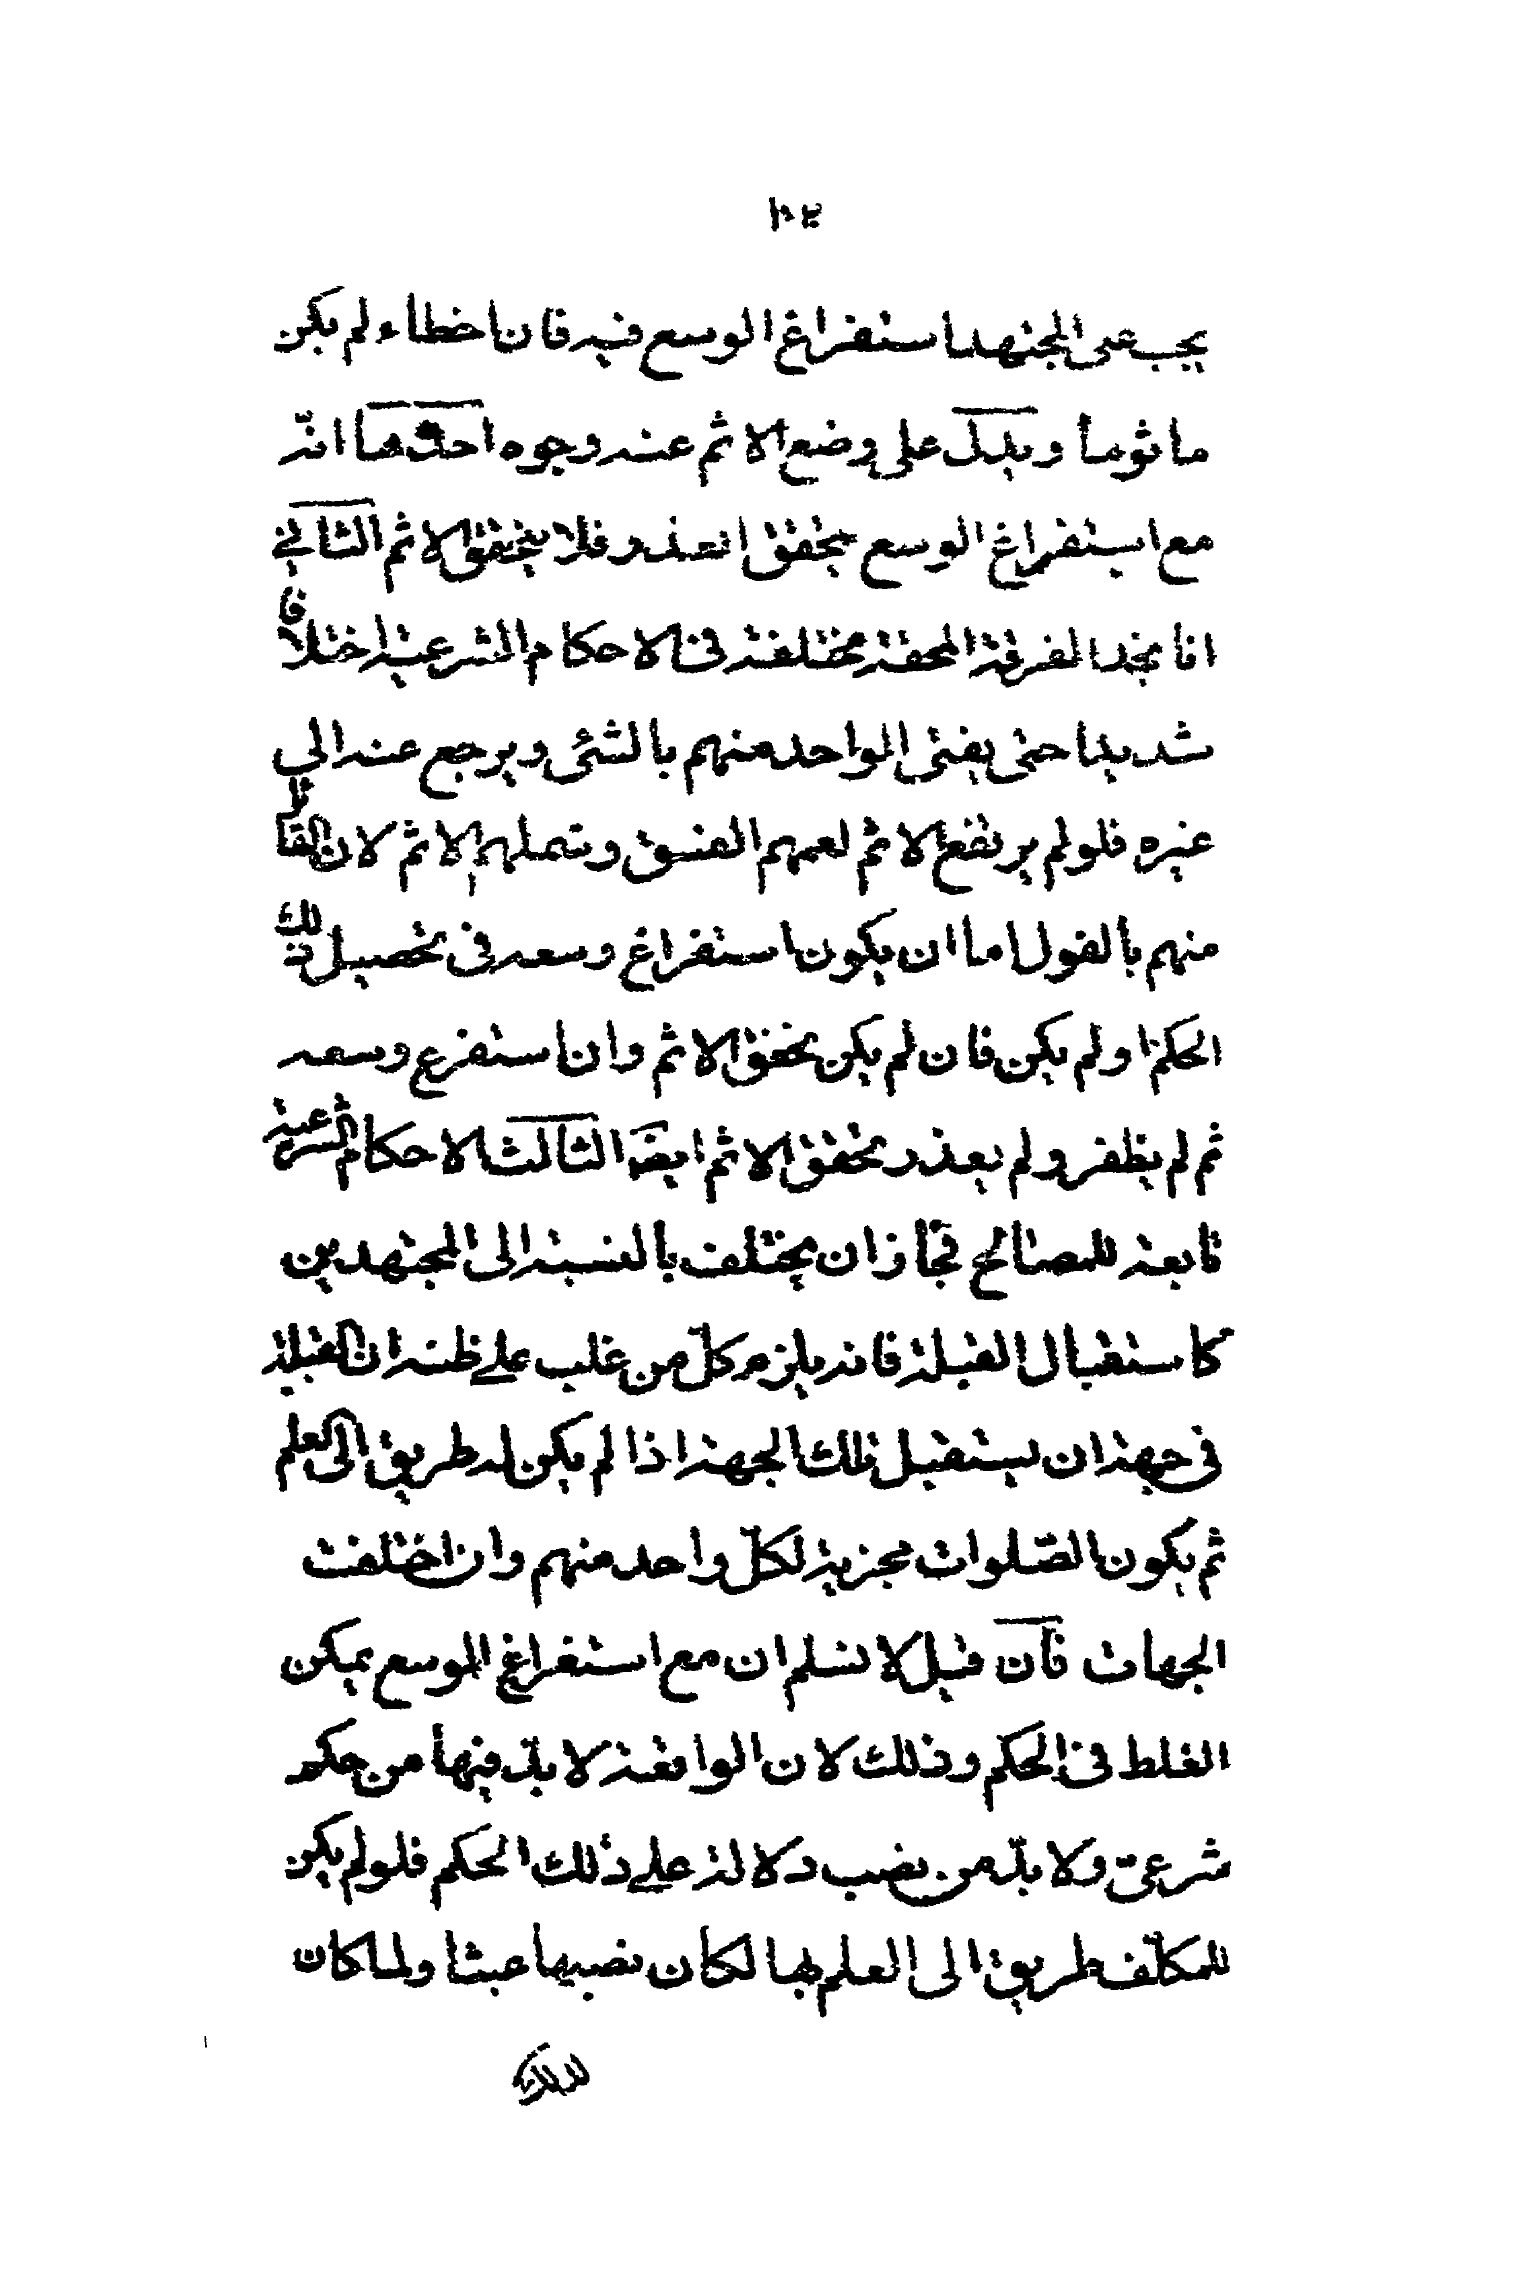 يجب على المجتهد استفراغ الوسع فيه فان اخطاء لم يكن
ماثوما ويدل على وضع الاثم عنه وجوه احدها انه
مع استفراغ الوسع يتحقق العذر فلا يتحقق الاثم الثاني
انا نجد الفرقة المحقة مختلفة في الاحكام الشرعية اختلافا
شديدا حتى يفتى الواحد منهم بالشئ ويرجع عنه الى
غيره فلو لم يرتفع الاثم لعمهم الفسق وشملهم الاثم لان القائل
منهم بالقول اما ان يكون استفراغ وسعه في تحصيل ذلك
الحكم او لم يكن فان لم يكن تحقق الاثم وان استفرغ وسعه
ثم لم يظفر ولم يعذر تحقق الاثم ايضا الثالث الاحكام الشرعية
تابعة للمصالح فجاز ان يختلف بالنسبة الى المجتهدين
كاستقبال القبلة فانه يلزم كلّ من غلب على ظنه ان القبلة
في جهة ان يستقبل تلك الجهة اذا لم يكن له طريق الى العلم
ثم يكون الصّلوات مجزية لكلّ واحد منهم وان اختلفت
الجهات فان قيل لا نسلم ان مع استفراغ الوسع يمكن
الغلط في الحكم وذلك لان الواقعة لا بدّ فيها من حكم
شرعىّ ولا بدّ من نصب دلالة على ذلك الحكم فلو لم يكن
للمكلّف طريق الى العلم بها لكان نصبها عبثا ولما كان